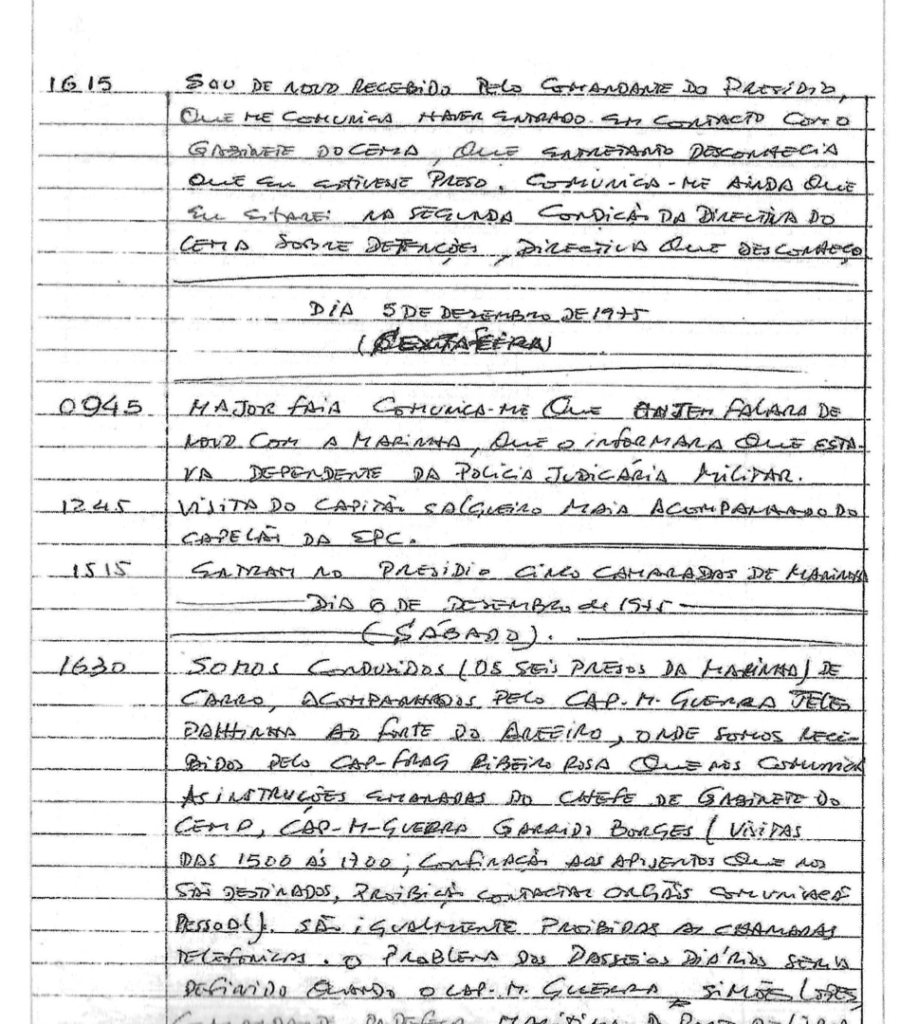 1615 SOU DE NOVO RECEBIDO PELO COMANDANTE DO PRESÍDIO,
QUE ME COMUNICA HAVER ENTRADO EM CONTACTO COM O
GABINETE DO CEMA, QUE ENTRETANTO DESCONHECIA
QUE EU ESTIVESSE PRESO. COMUNICA-ME AINDA QUE
EU ESTAREI NA SEGUNDA CONDIÇÃO DA DIRECTIVA DO
CEMA SOBRE DETENÇÕES, DIRECTIVA QUE DESCONHEÇO
DIA 5 DE DEZEMBRO DE 1975
(SEXTA-FEIRA)
0945 MAJOR FAIA COMUNICA-ME QUE ONTEM FALARA DE
NOVO COM A MARINHA, QUE O INFORMARA QUE ESTA-
VA DEPENDENTE DA POLÍCIA JUDICÁRIA MILITAR.
1245 VISITA DO CAPITÃO SALGUEIRO MAIA ACOMPANHADO DO
CAPELÃO DA EPC.
1515 ENTRAM NO PRESIDIO CINCO CAMARADAS DE MARINHA
DIA 6 DE DEZEMBRO de 1975
(SÁBADO).
1630 SOMOS CONDUZIDOS (OS SEIS PRESOS DA MARINHA) DE
CARRO, ACOMPANHADOS PELO CAP-M-GUERRA TELES
PALHINHA AO FORTE DO AREEIRO, ONDE SOMOS RECE-
BIDOS PELO CAP-FRAG RIBEIRO ROSA QUE NOS COMUNICA
AS INSTRUÇÕES EMANADAS DO CHEFE DE GABINETE DO
CEMA, CAP-M-GUERRA GARRIDO BORGES (VISITAS
DAS 1500 ÀS 1700; CONFINAÇÃO AOS APOSENTOS QUE NOS
SÃO DESTINADOS, PROIBIÇÃO CONTACTAR ORGÃOS COMUNICAÇÃO
PESSOAL). SÃO IGUALMENTE PROIBIDAS AS CHAMADAS
TELEFÓNICAS. O PROBLEMA DOS PASSEIOS DIÁRIOS SERIA
DEFINIDO QUANDO O CAP-M. GUERRA SIMÕES LOPES